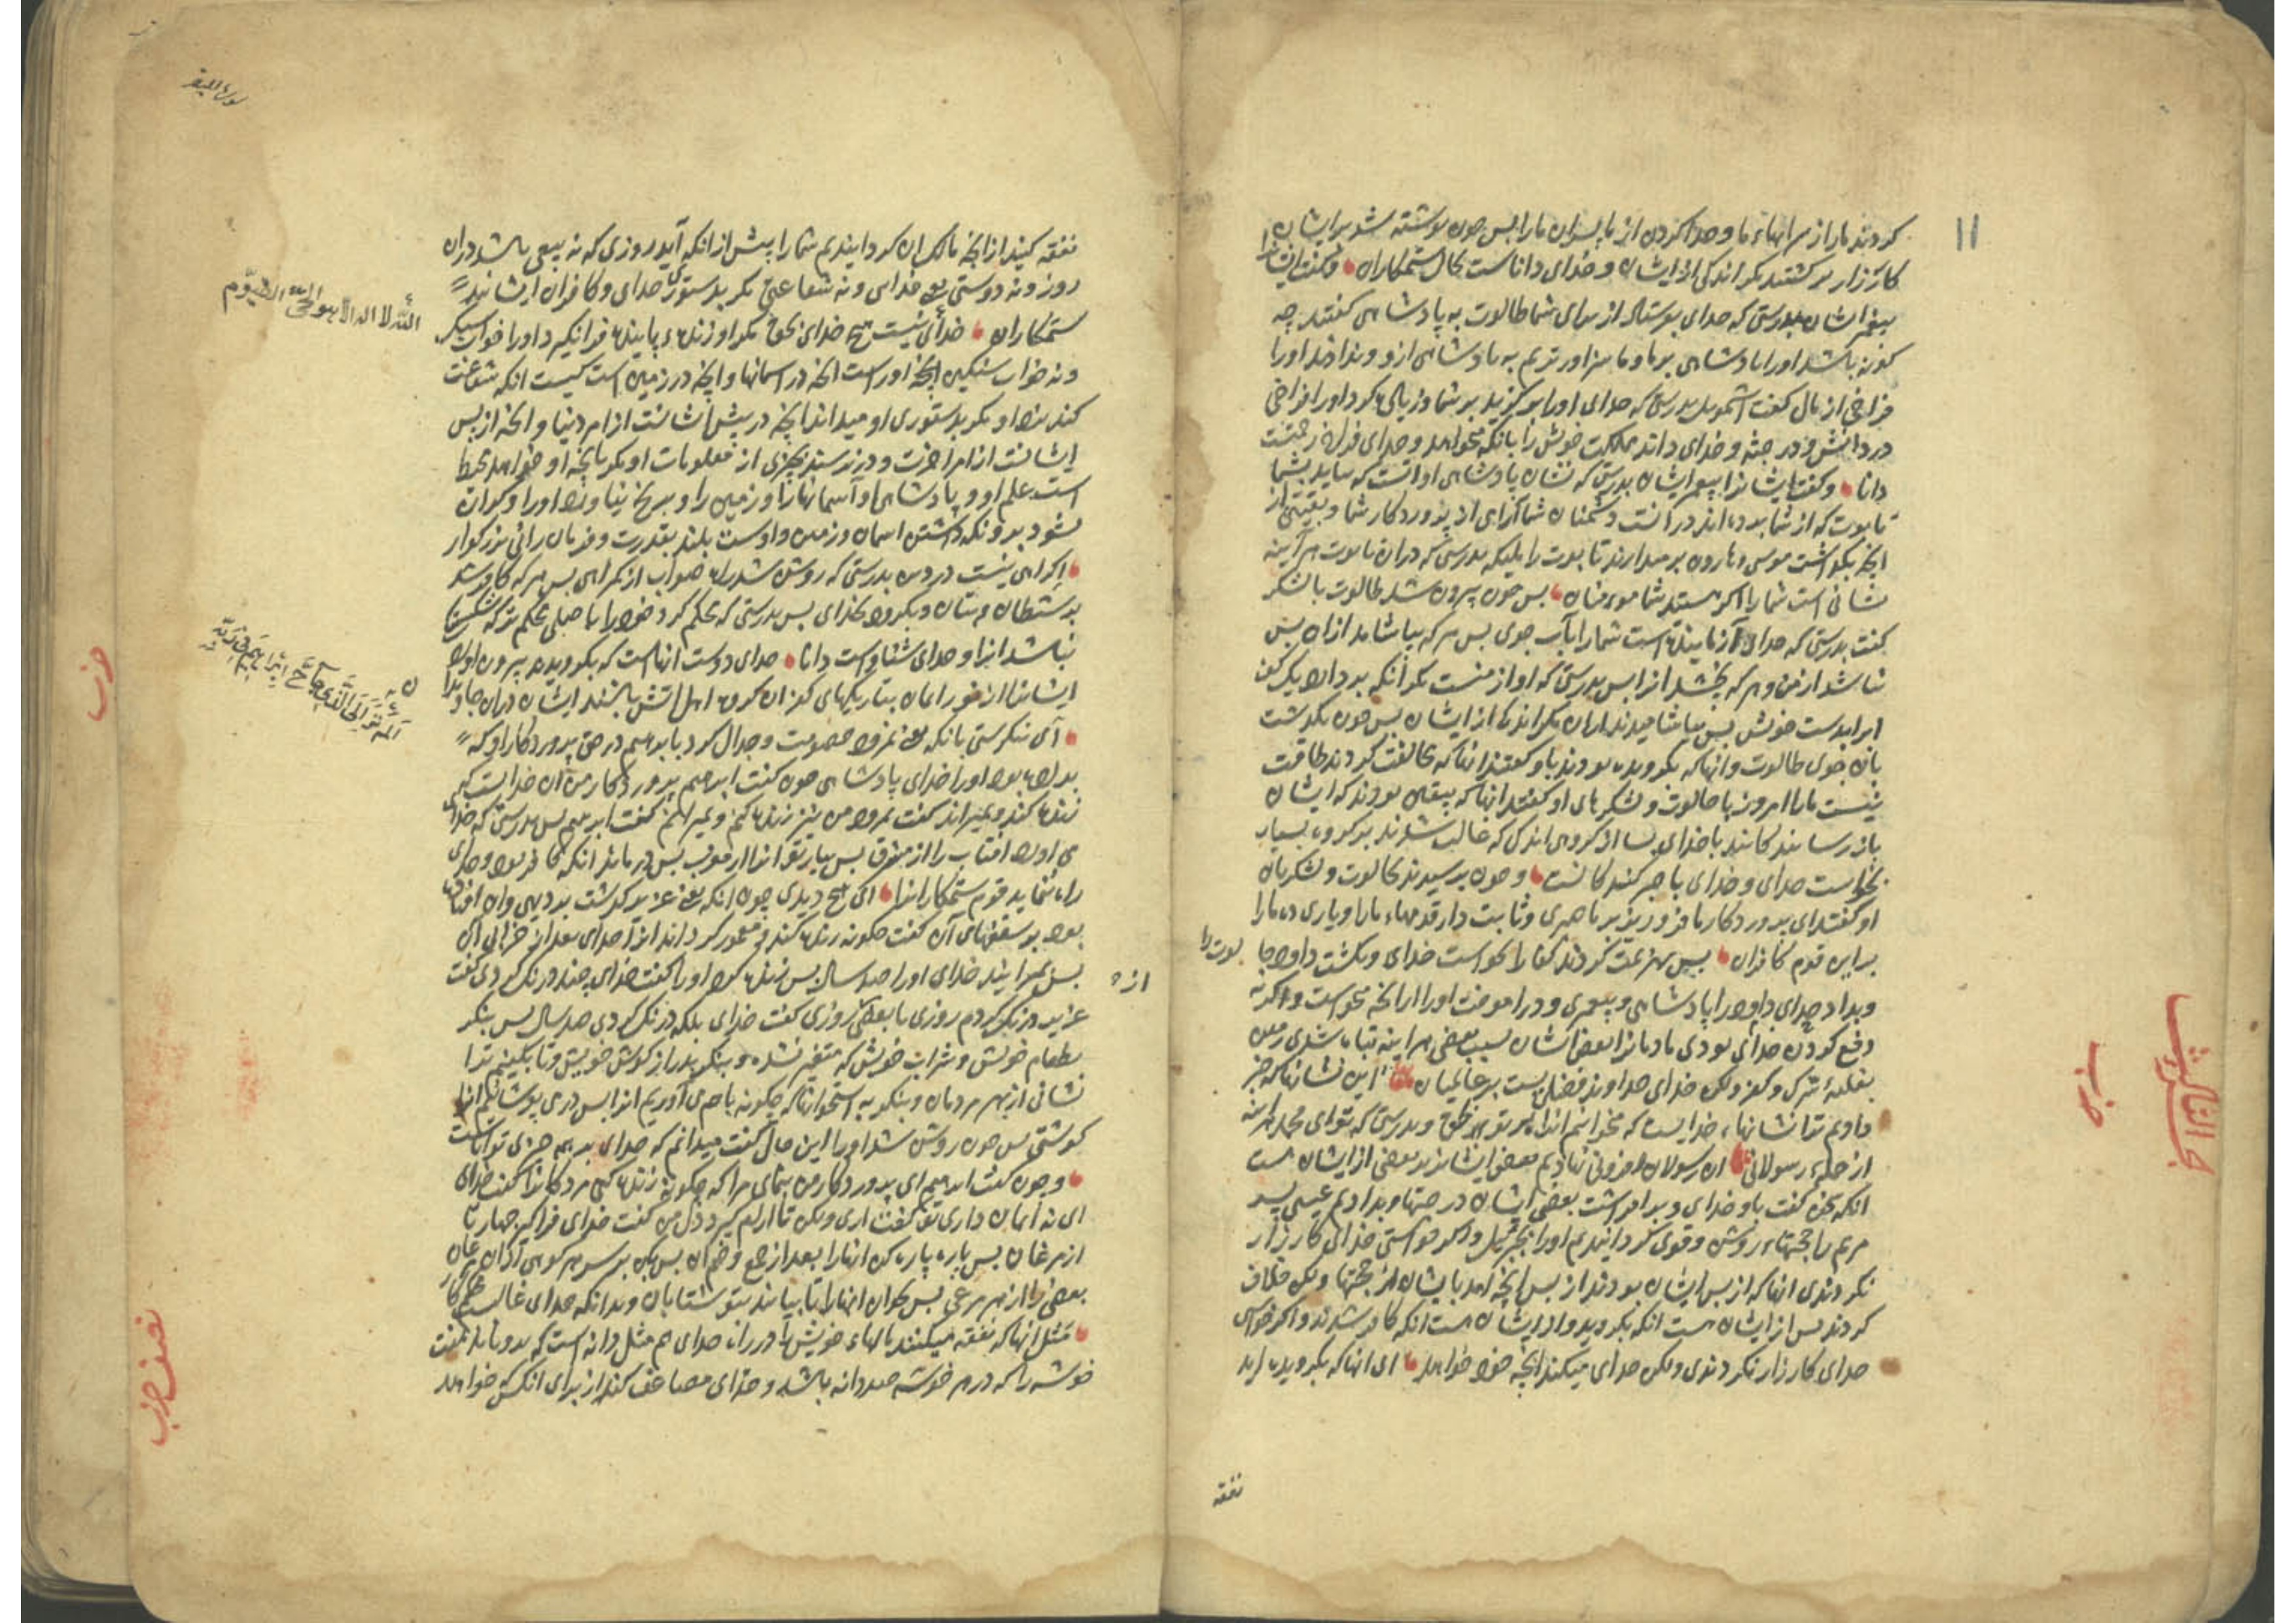 ۱۱
کردند ما را از سراهاء ما و جدا کردن از ما پسران ما را پس چون نوشته شد بر ایشان
کارزار برگشتند مگر اندکی از ایشان و خدای داناست بحال ستمکاران و گفت ایشانرا
پیغمبر ایشان بدرستی که خدای بفرستاد از برای شما طالوت به پادشاهی گفتند چه
گونه باشد او را پادشاهی بر ما و ما سزاوارتریم به پادشاهی ازو و نداده اند او را
فراخی از مال گفت اشمویل بدرستی که خدای او را برگزید بر شما و زیاده کرد او را فراخی
در دانش و در جثه و خدای داند مملکت خویش را بانکه خواهد و خدای فراخ رحمتست
دانا و گفت ایشانرا پیغمبر ایشان بدرستی که نشان پادشاهی او انست که بیاید بشما
تابوت که از شما برده اند در آنست دشمنان شما آرامی از پروردکار شما و بقیتی از
انچه بگذاشت موسی و هارون بر میدارند تابوت را ملیکه بدرستی که دران تابوت هرآینه
نشانی است شما را اگر هستند شما مومنان پس چون بیرون شد طالوت با لشکر
گفت بدرستی که خدای آزماینده است شما را بآب جوی پس هر که بیاشامد ازان پس
نباشد از من و هر که نچشد ازا پس بدرستی که او از منست مگر آنکه بردارد یک کف
ابرا بدست خویش پس بیاشامیدند ازان مگر اندکی از ایشان پس چون بگذشت
بان جوی طالوت و انها که بگرویده بودند باو گفتند انها که مخالفت کردند طاقت
نیست ما را امروز با جالوت و لشکرهای او گفتند انها که بیقین بودند که ایشان
باز رسانندکانند با خدای بسا از کروهی اندک که غالب شدند بر کروه بسیار
بخواست خدای و خدای با صبر کنندکانست و چون برسیدند بجالوت و لشکریان
او گفتند ای پروردکار ما فرو ریز بر ما صبری و ثابت دار قدمهاء ما را و یاری ده ما را
بر این قوم کافران پس هزیمت کردند کفار را بخواست خدای و بکشت داود جا
لوت را
و بداد خدای داود را پادشاهی و پیغمبری و در اموخت او را از انچه میخواست و اگر نه
دفع کردن خدای بودی مردمانرا بعضی ایشان بسبب بعضی هراینه تباه شدی زمین
بغلبهٔ شرک و کفر ولکن خدای خداوند فضل است بر عالمیان این نشانها که خبر
دادیم ترا نشانهاء خدایست که میخوانیم انرا بر تو بحق و بدرستی که تو ای محمد هراینه
از جمله رسولانی ان رسولان افزونی نهادیم بعضی ایشانرا بر بعضی از ایشان هست
انکه سخن گفت باو خدای و برافراشت بعضی ایشان درجتها و بدادیم عیسی پسر
مریم را حجتهاء روشن و قوی گردانیدیم او را بجبرئیل و اگر خواستی خدای کارزار
نکردندی انها که از پس ایشان بودند از پس انچه امد بایشان از حجتها ولکن خلاف
کردند پس از ایشان هست انکه بگروید و از ایشان هست انکه کافر شدند و اگر خواستی
خدای کارزار نکردندی ولکن خدای میکند انچه خود خواهد ای انها که بگرویده اید
نفقه
حزب
سورة البقر
نفقه کنید از انچه مالک ان گردانیدیم شما را پیش از انکه آید روزی که نه بیعی باشد دران
روز و نه دوستی بی خدای و نه شفاعتی مگر بدستوری خدای و کافران ایشانند
ستمکاران خدائی نیست هیچ خدای بحق مگر او زنده پاینده فرانگیرد او را خواب سبک
الله لا اله الا هو الحی القیوم
و نه خواب سنگین انچه اوراست انچه در اسمانها و انچه در زمین است کیست انکه شفاعت
کند نزد او مگر بدستوری او میداند انچه در پیش ایشانست از امر دنیا و انچه از پس
ایشانست از امر اخرت و در نرسند بچیزی از معلومات او مگر بانچه او خواهد محیط
است علم او و پادشاهی او آسمانها را و زمین را و برنج نیاورد او را و گران
نشود برو نکه داشتن اسمان و زمین و اوست بلند بقدرت و فرمان رانی بزرکوار
اکراهی نیست در دین بدرستی که روشن شد راه صواب از گمراهی پس هر که کافر شد
بشیطان و بتان و بگرود بخدای پس بدرستی که محکم کرد خود را بحبلی محکم تر که شکستن
نباشد انرا و خدای شنواست دانا خدای دوست انهاست که بگرویدند بیرون اورد
الم تر الی الذی حاج ابراهیم فی ربه
آی ننگرستی بانکه یعنی نمرود خصومت و جدال کرد بابراهیم در حق پروردکار او که
بداده بود او را خدای پادشاهی چون گفت ابرهیم پروردکار من آن خدایست که
زنده کند و بمیراند گفت نمرود من نیز زنده کنم و بمیرانم گفت ابرهیم پس بدرستی که خدای
می اورد افتاب را از مشرق پس بیار تو انرا از مغرب پس درماند انکه کافر بود و خدای
راه ننماید قوم ستمکارانرا ای هیچ دیدی چون انکه یعنی عزیر بگذشت بر دیهی و ان افتاده
بود بر سقفهای آن گفت چکونه زنده کند و معمور گرداند انرا خدای بعد از خرابی ان
پس بمیرانید خدای او را صد سال پس زنده کرد او را گفت خدای چند درنگ کردی گفت
عزیر درنگ کردم روزی یا بعضی روزی گفت خدای بلکه درنگ کردی صد سال پس بنگر
بطعام خویش و شراب خویش که متغیر نشده و بنگر بدراز گوش خویش و تا بکنیم ترا
نشانی از بهر مردمان و بنگر به استخوانها که چکونه باهم می آوریم انرا پس در می پوشانیم انرا
گوشتی پس چون روشن شد او را این حال گفت میدانم که خدای بر همه چیزی تواناست
و چون گفت ابرهیم ای پروردکار من بنمای مرا که چگونه زنده کنی مردکانرا گفت خدای
ای نه ایمان داری تو گفت اری ولکن تا ارام گیرد دل من گفت خدای فراگیر چهار تا
از مرغان پس پاره پاره کن انها را بعد از جمع و ضم ان پس بنه بر سر هر کوهی ازان مرغان
بعضی را از هر مرغی پس بخوان انها را تا بیایند بتو شتابان و بدانکه خدای غالب حکم کار
مثل انها که نفقه میکنند مالهاء خویش را در راه خدای هم مثل دانه است که برویاند هفت
خوشه را که در هر خوشه صد دانه باشد و خدای مضاعف کند از برای انکس که خواهد
حزب
نصف حزب